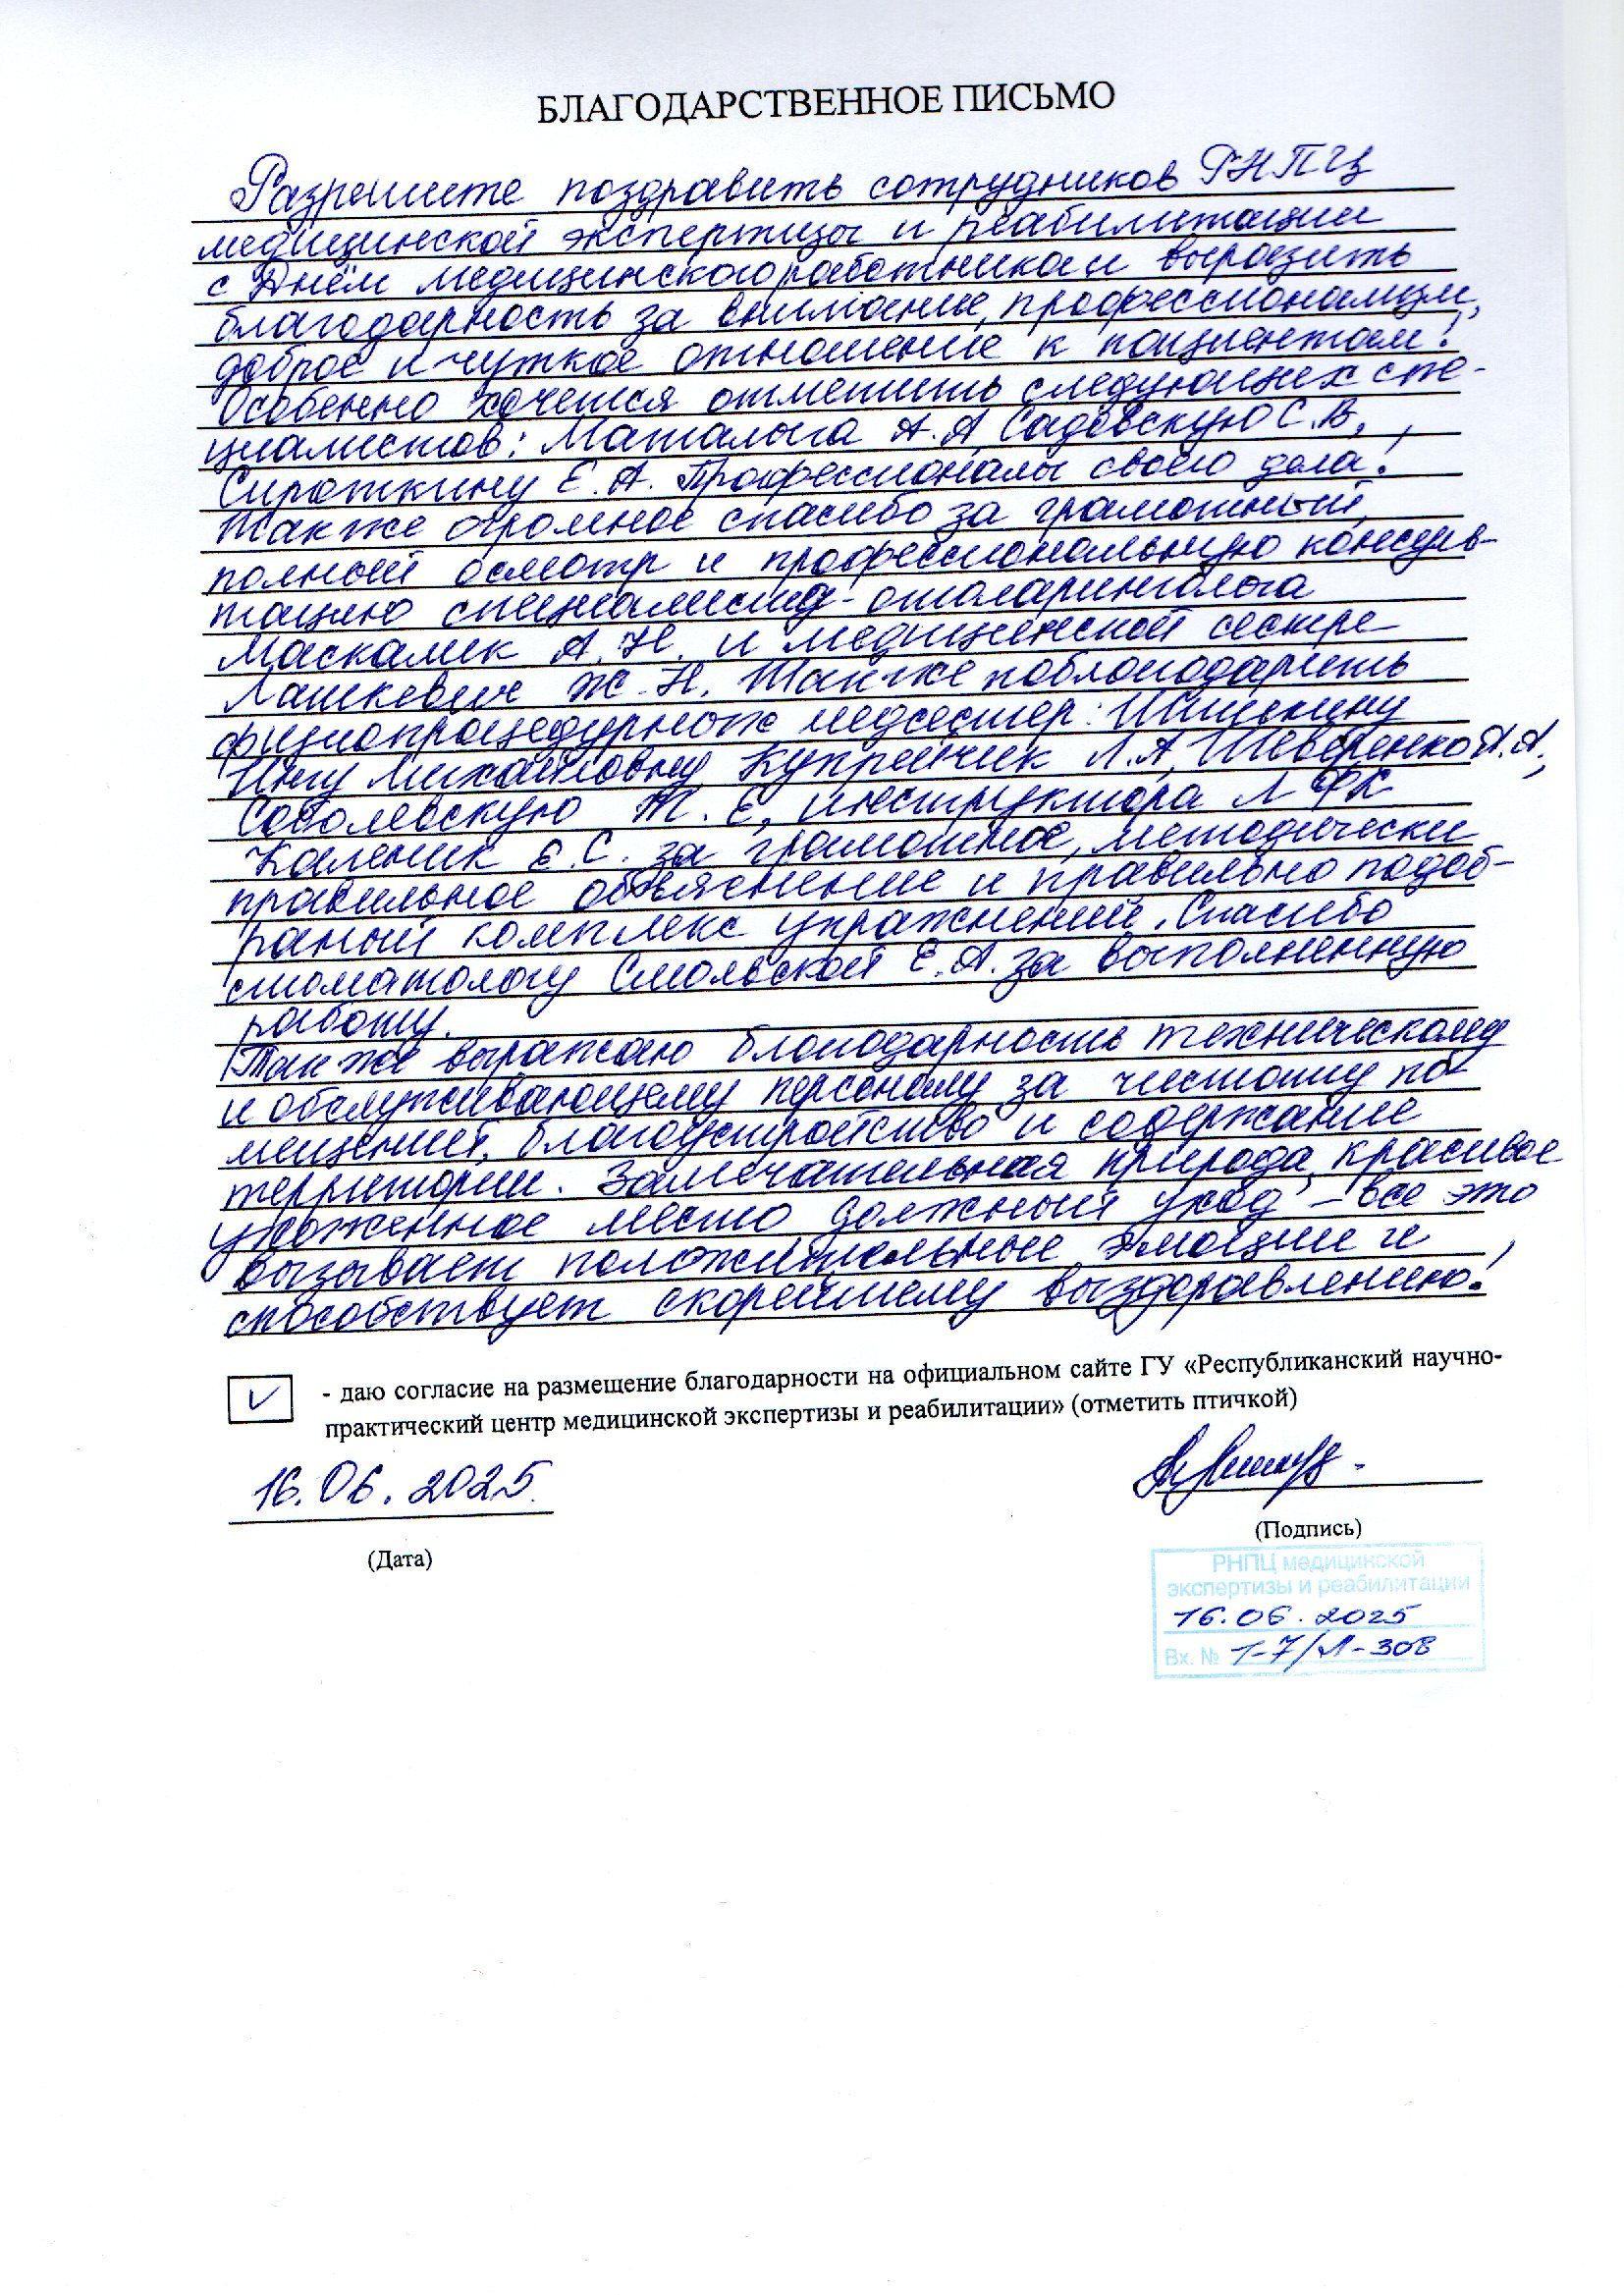 БЛАГОДАРСТВЕННОЕ ПИСЬМО
Разрешите поздравить сотрудников РНПЦ
медицинской экспертизы и реабилитации
с Днём медицинского работника и выразить
благодарность за внимание, профессионализм,
доброе и чуткое отношение к пациентам!
Особенно хочется отметить следующих спе-
циалистов: Маталыга А.А, Садовскую С.В,,
Сироткину Е.А. Профессионалы своего дела!
Также огромное спасибо за грамотный,
полный осмотр и профессиональную консуль-
тацию специалиста-отоларинголога
Маскалик А.Н. и медицинской сестре
Лашкевич Ж.Н. Также поблагодарить
физиопроцедурных медсестер: Шишкину
Инну Михайловну, Купрейчик Л.А, Шеверенко А.А,
Соболевскую Т.Е, инструктора ЛФК
Каленик Е.С. за грамотное, методически
правильное объяснение и правильно подоб-
раный комплекс упражнений. Спасибо
стоматологу Смольской Е.А. за выполненную
работу.
Также выражаю благодарность техническому
и обслуживающему персоналу за чистоту по-
мещений, благоустройство и содержание
территории. Замечательная природа, красивое
ухоженное место, должный уход – все это
вызывает положительные эмоции и
способствует скорейшему выздоравлению!
- даю согласие на размещение благодарности на официальном сайте ГУ «Республиканский научно-
практический центр медицинской экспертизы и реабилитации» (отметить птичкой)
16.06.2025
(Подпись)
(Дата)
РНПЦ медицинской
экспертизы и реабилитации
16.06.2025
Вх. № 1-7/Л-308